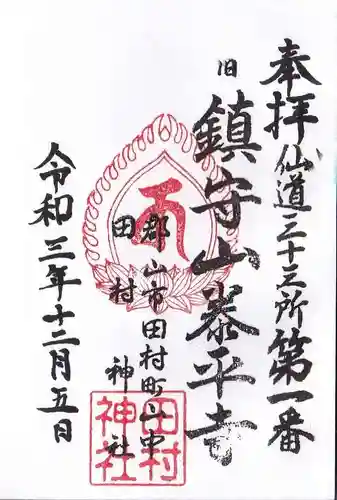 奉拝 仙道三十三所第一番
旧
鎮守山泰平寺
郡山市田村町山中
田村神社
令和三年十二月五日
田村
神社